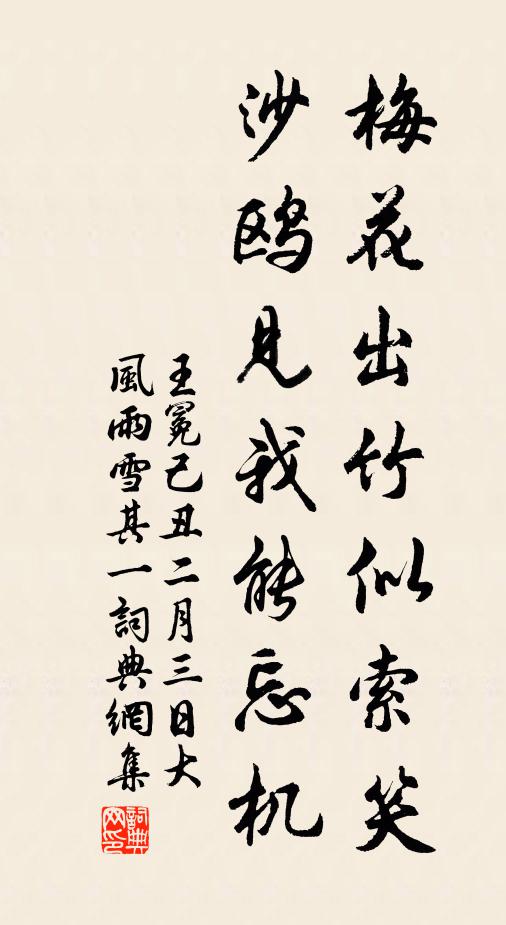 梅花出竹似索笑
沙鸥见我能忘机
王冕己丑二月三日大
風雨雪其一詞典網集
詞典
网印